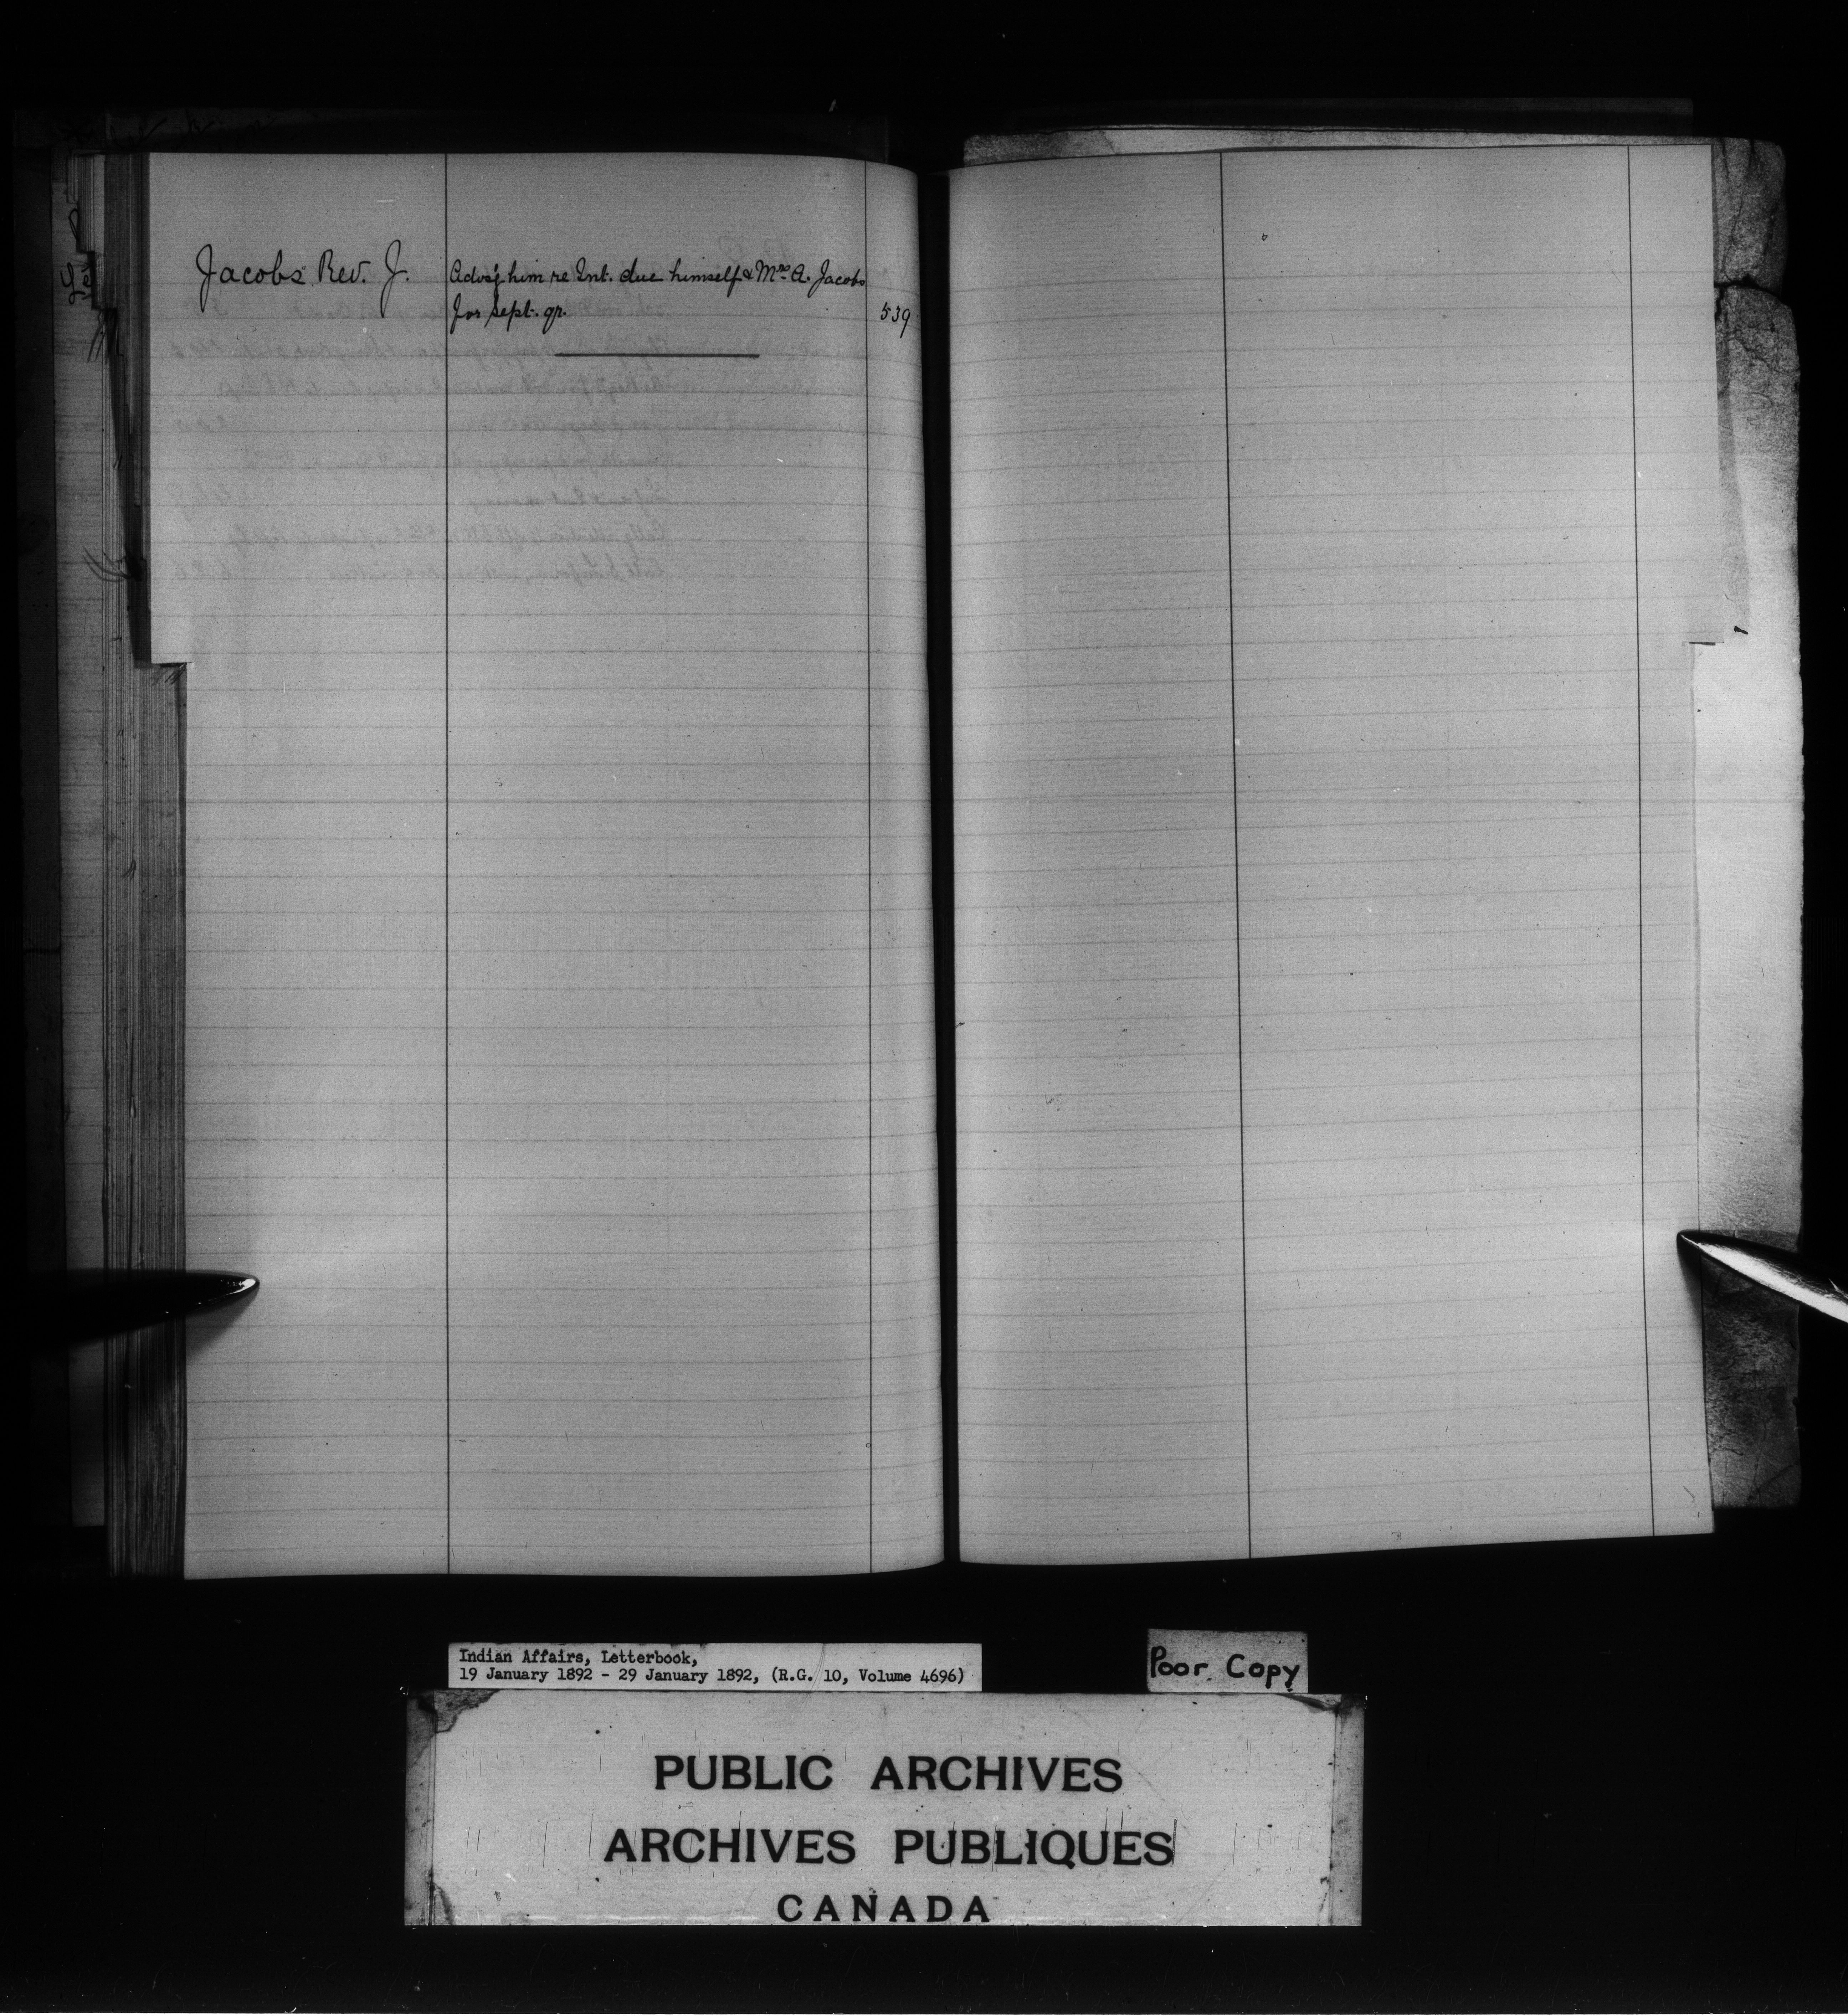 Jacobs Rev. J. Advs'g him re Int. due himself & Mrs A. Jacobs
for Sept. qr. 539
Indian Affairs, Letterbook,
19 January 1892 - 29 January 1892, (R.G. 10, Volume 4696)
Poor Copy
PUBLIC ARCHIVES
ARCHIVES PUBLIQUES
CANADA